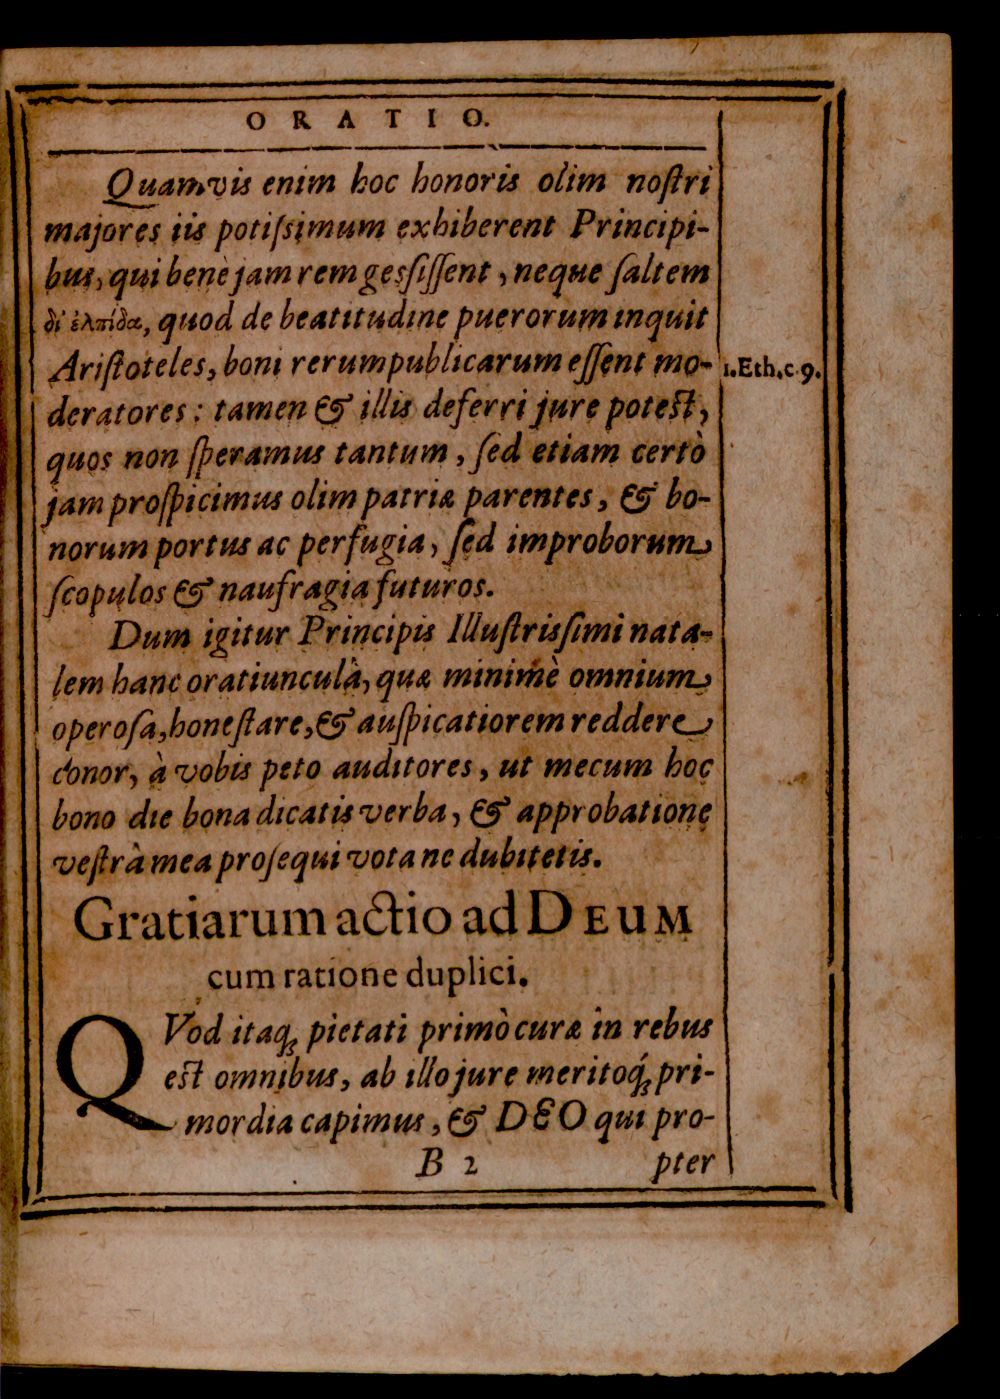 ORATIO.
Quamvis enim hoc honoris olim noſtri
majores iis potiſsimum exhiberent Principi-
bus, qui benè jam rem gesſiſſent, neque ſaltem
δι' ἐλπίδα, quod de beatitudine puerorum inquit
Ariſtoteles, boni rerumpublicarum eſſent mo-
1.Eth.c.9.
deratores: tamen & illis deferri jure poteſt,
quos non ſperamus tantum, ſed etiam certò
jam proſpicimus olim patriæ parentes, & bo-
norum portus ac perfugia, ſed improborum
ſcopulos & naufragia futuros.
Dum igitur Principis Illuſtrisſimi nata-
lem hanc oratiunculà, quæ minimè omnium
operoſa, honeſtare, & auſpicatiorem reddere
conor, à vobis peto auditores, ut mecum hoc
bono die bona dicatis verba, & approbatione
veſtrà mea proſequi vota ne dubitetis.
Gratiarum actio ad DEUM
cum ratione duplici.
QVod itaq; pietati primò curæ in rebus
eſt omnibus, ab illo jure meritoq́; pri-
mordia capimus, & DEO qui pro-
B 2 pter